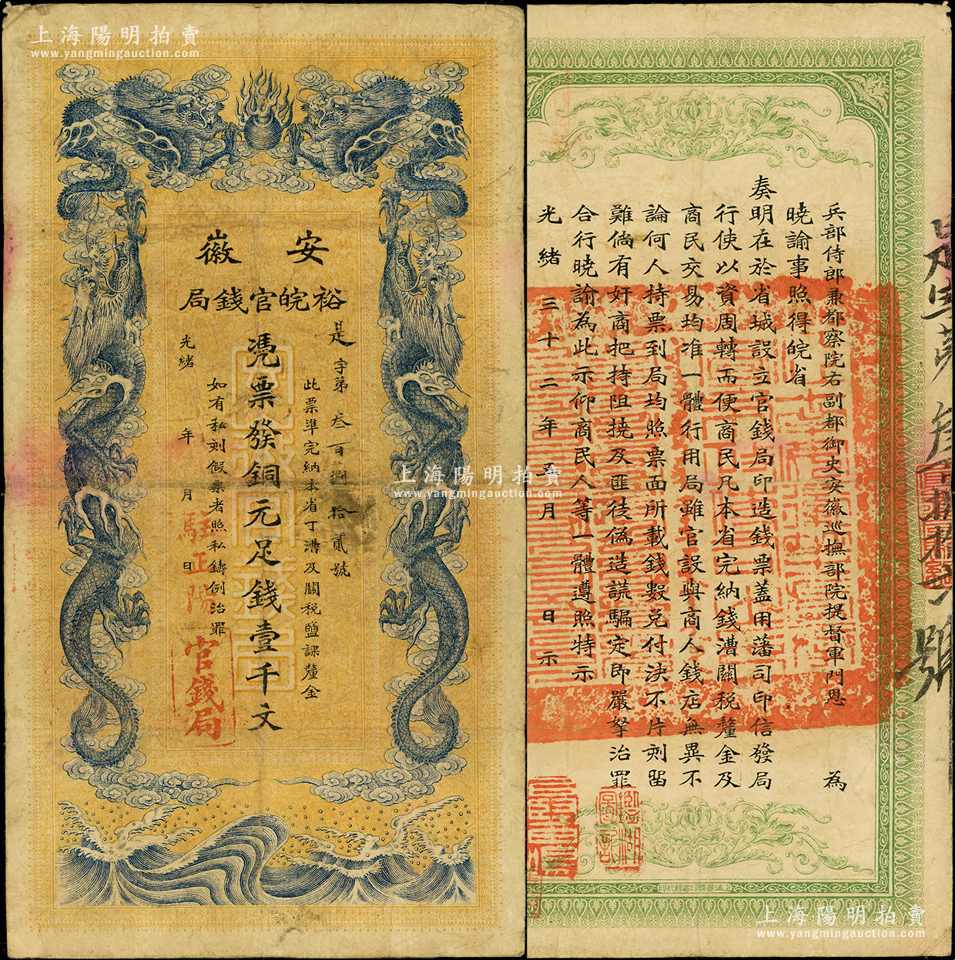 上海陽明拍賣
www.yangmingauction.com
安徽
裕皖官錢局
是字第叁百捌拾貳號
此票準完納本省丁漕及關稅鹽課釐金
憑票發銅元足錢壹千文
如有私刻假票者照私鑄例治罪
光緒 年 月 日
駐正陽
官錢局
上海陽明拍賣
www.yangmingauction.com
兵部侍郎兼都察院右副都御史安徽巡撫部院提督軍門恩 為
曉諭事照得皖省
奏明在於省城設立官錢局印造錢票蓋用藩司印信發局
行使以資周轉而便商民凡本省完納錢漕關稅釐金及
商民交易均准一體行用局雖官設與商人錢店無異不
論何人持票到局均照票面所載錢數兌付決不片刻留
難倘有奸商把持阻撓及匪徒偽造謊騙定即嚴拏治罪
合行曉諭為此示仰商民人等一體遵照特示
光緒三十二年五月 日示
號
上海陽明拍賣
www.yangmingauction.com